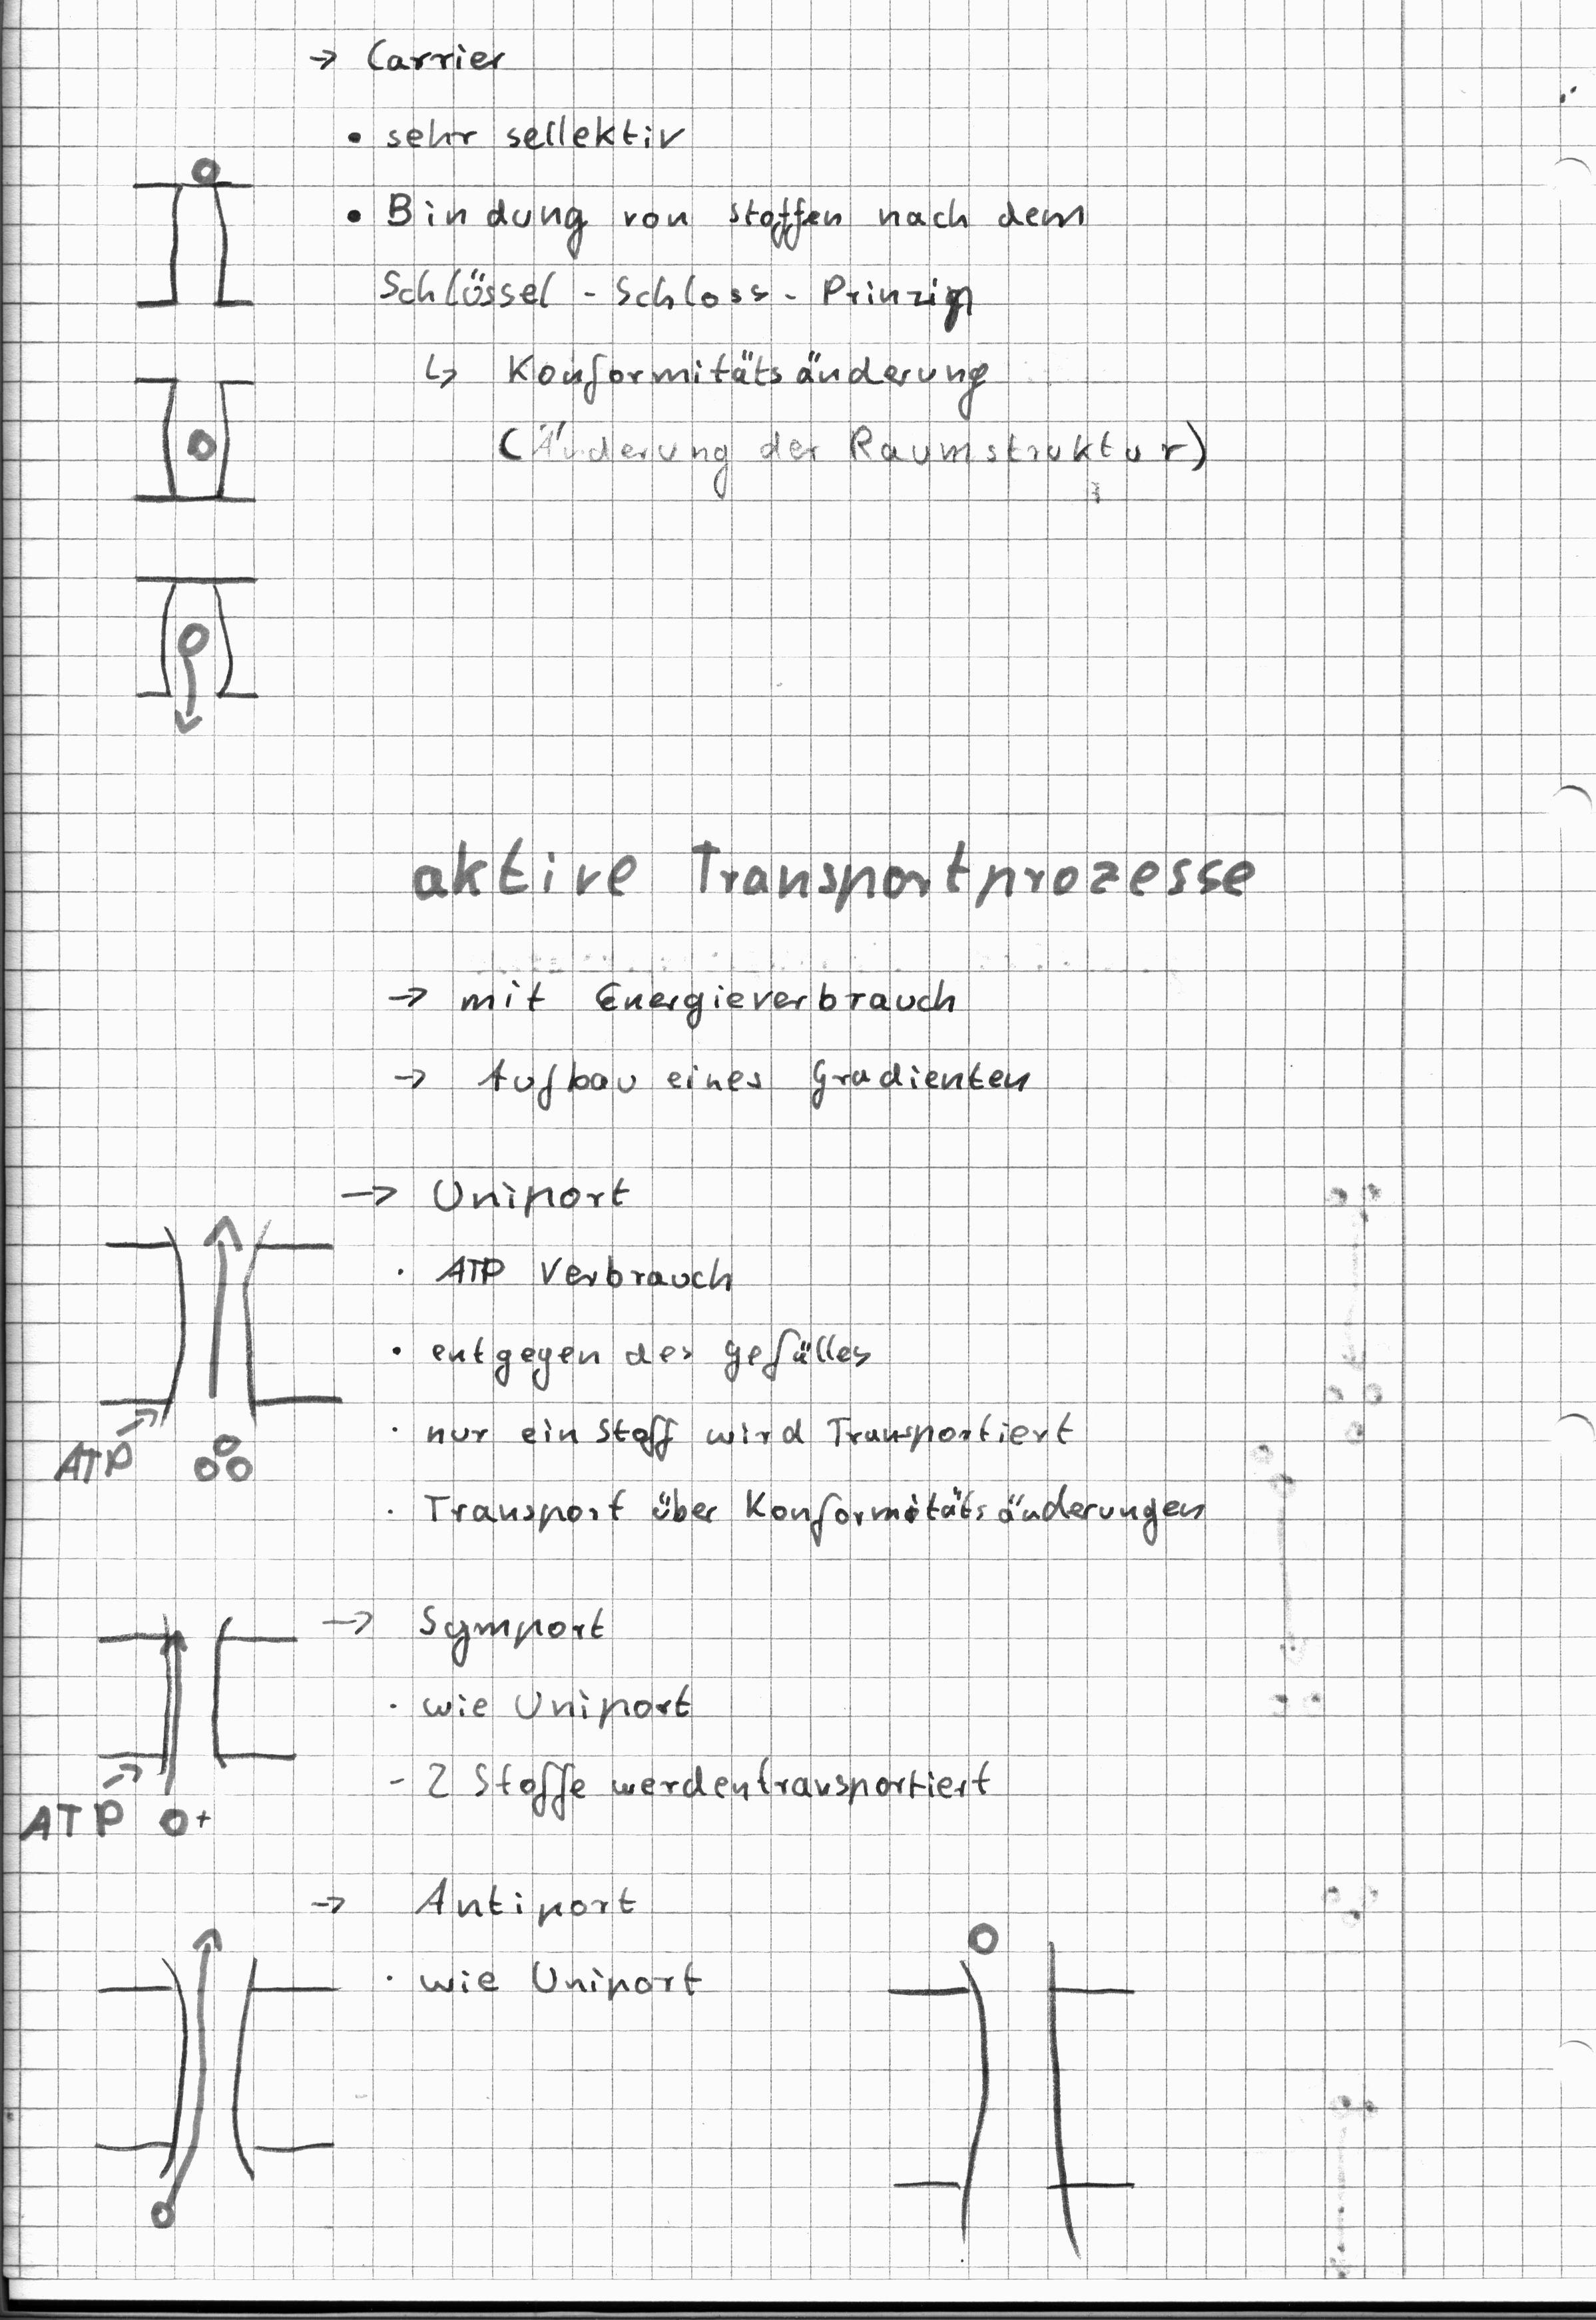 → Carrier
• sehr sellektiv
• Bindung von Stoffen nach dem
Schlüssel - Schloss - Prinzip
↳ Konformitätsänderung
(Änderung der Raumstruktur)
aktive Transportprozesse
→ mit Energieverbrauch
→ Aufbau eines Gradienten
→ Uniport
· ATP Verbrauch
• entgegen des gefälles
· nur ein Stoff wird Transportiert
ATP
· Transport über Konformitätsänderungen
→ Symport
· wie Uniport
- 2 Stoffe werden transportiert
ATP +
→ Antiport
· wie Uniport